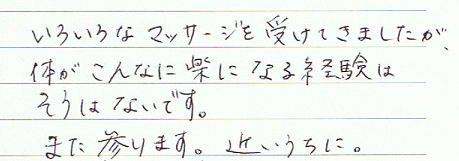 いろいろな マッサージを 受けてきましたが、
体が こんなに 楽に なる 経験は
そうは ないです。
また 参ります。近いうちに。